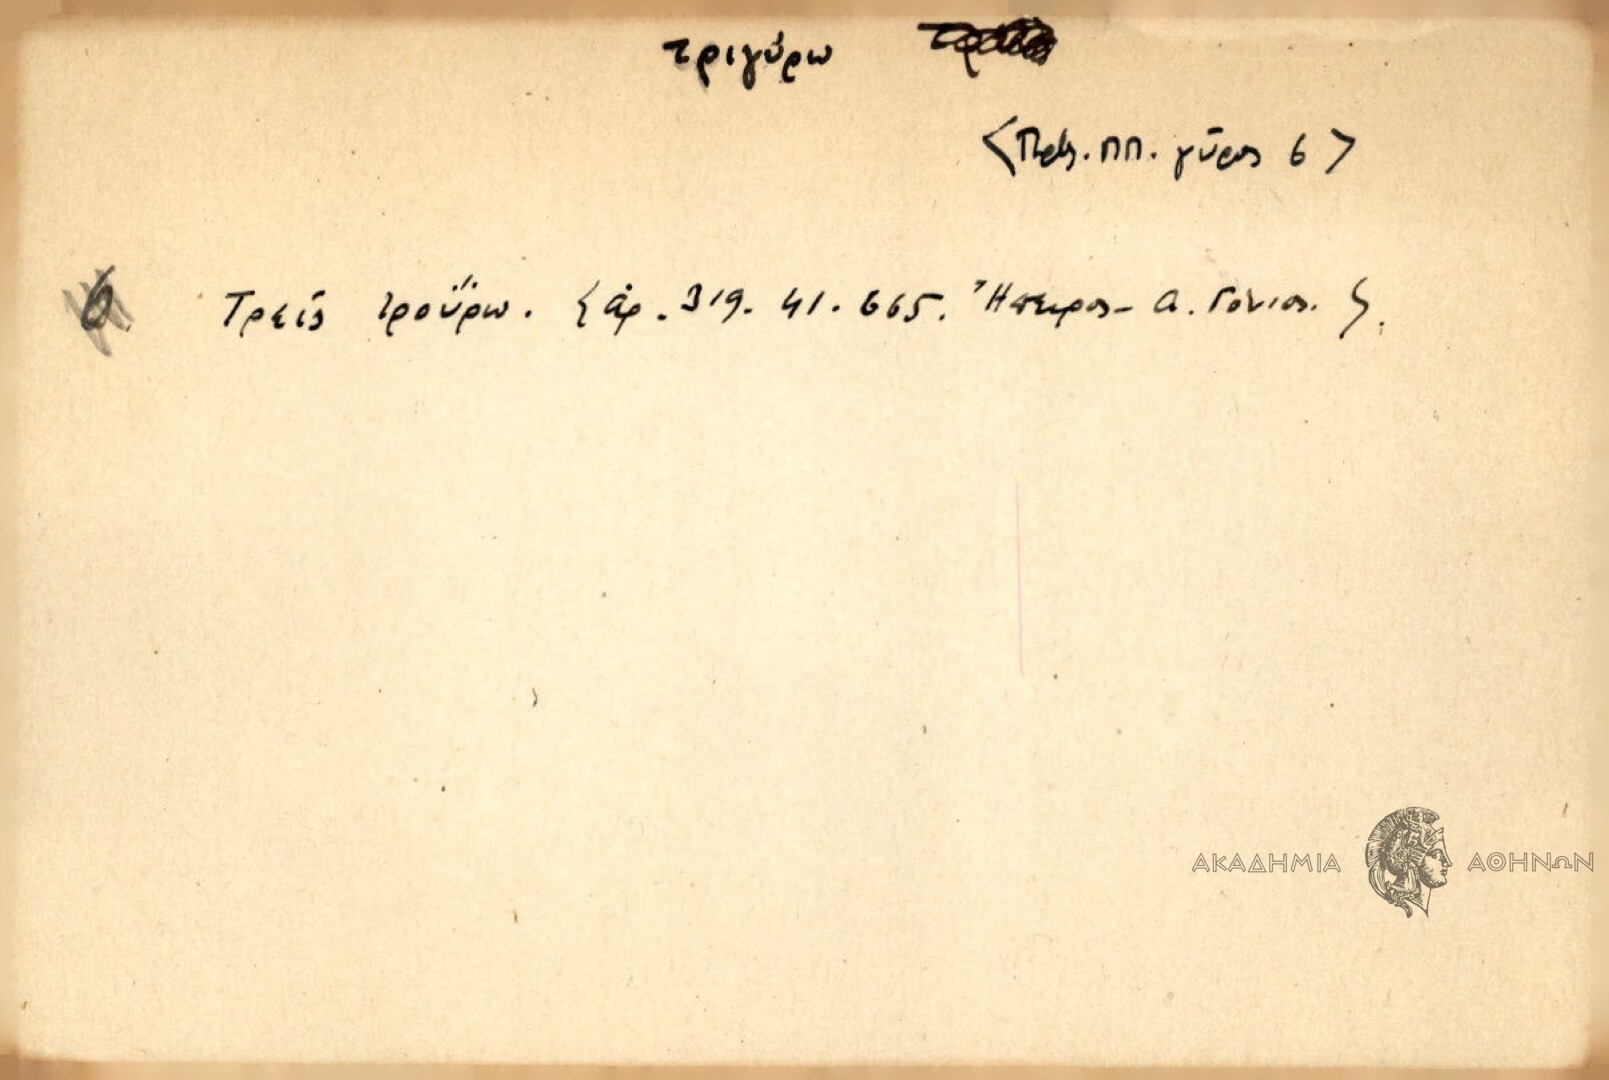 τριγύρω
<Πρβ. ΠΠ. γῦρος 6>
6 Τρεῖς τροΰρω. {ἀρ. 319. 41. 665. Ἤπειρος - Α. Γόνιος. }.
ΑΚΑΔΗΜΙΑ ΑΘΗΝΩΝ